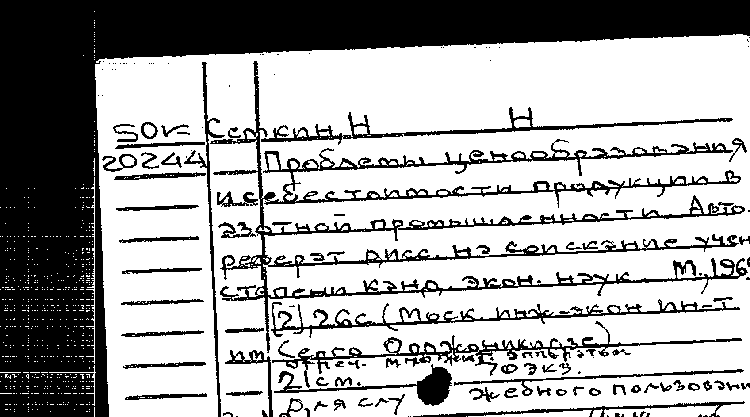 SOK Сеткин, Н Н
20244 Проблемы ценообразования
и себестоимости продукции в
азотной промышленности. Авто-
реферат дисс. на соискание учен
степени канд. экон. наук. М., 196
[2], 26с. (Моск. инж.-экон ин-т
им. Серго Орджоникидзе)
отпеч. множит. аппаратом
21см. 70 экз.
Для слу жебного пользован